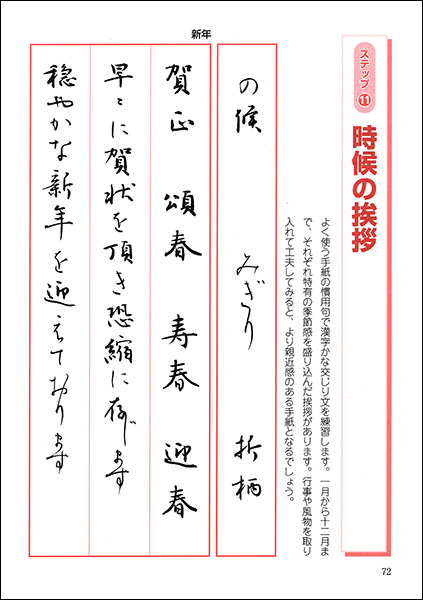 ステップ
11
時候の挨拶
よく使う手紙の慣用句で漢字かな交じり文を練習します。一月から十二月ま
で、それぞれ特有の季節感を盛り込んだ挨拶があります。行事や風物を取り
入れて工夫してみると、より親近感のある手紙となるでしょう。
の候 みぎり 折柄
新年
賀正 頌春 寿春 迎春
早々に賀状を頂き恐縮に存じます
穏やかな新年を迎えております
72